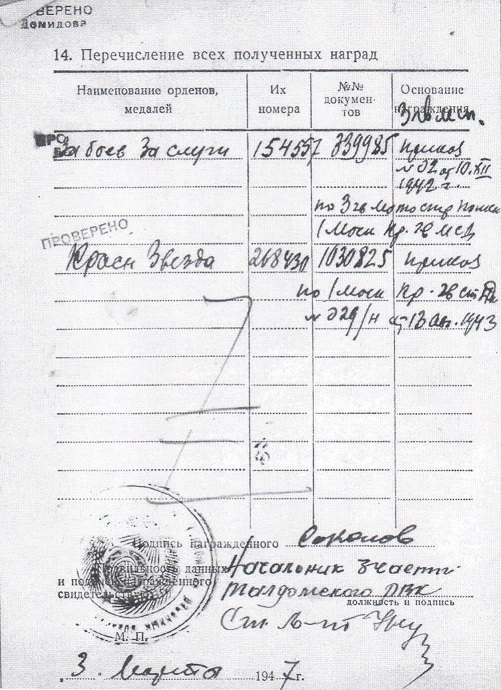 ВЕРЕНО
Демидова
14. Перечисление всех полученных наград
Наименование орденов, медалей
Их номера
№№ докумен-тов
Основание награждения
3 гв мсп.
За боев заслуги 154557 839985 приказ
№ 02 от 10.XII
1942 г.
по 3 гв мотостр полку
1 моск кр. гв мсд
ПРОВЕРЕНО
Красн Звезда 268430 1030825 приказ
по 1 моск кр. гв
№ 029/н от 13 ав. 1943
Подпись награжденного Соколов
Правильность данных
и подписи награжденного
свидетельствую
Начальник 3 части
Талдомского РВК
должность и подпись
Ст. л-т
М. П.
3. Марта 1947 г.